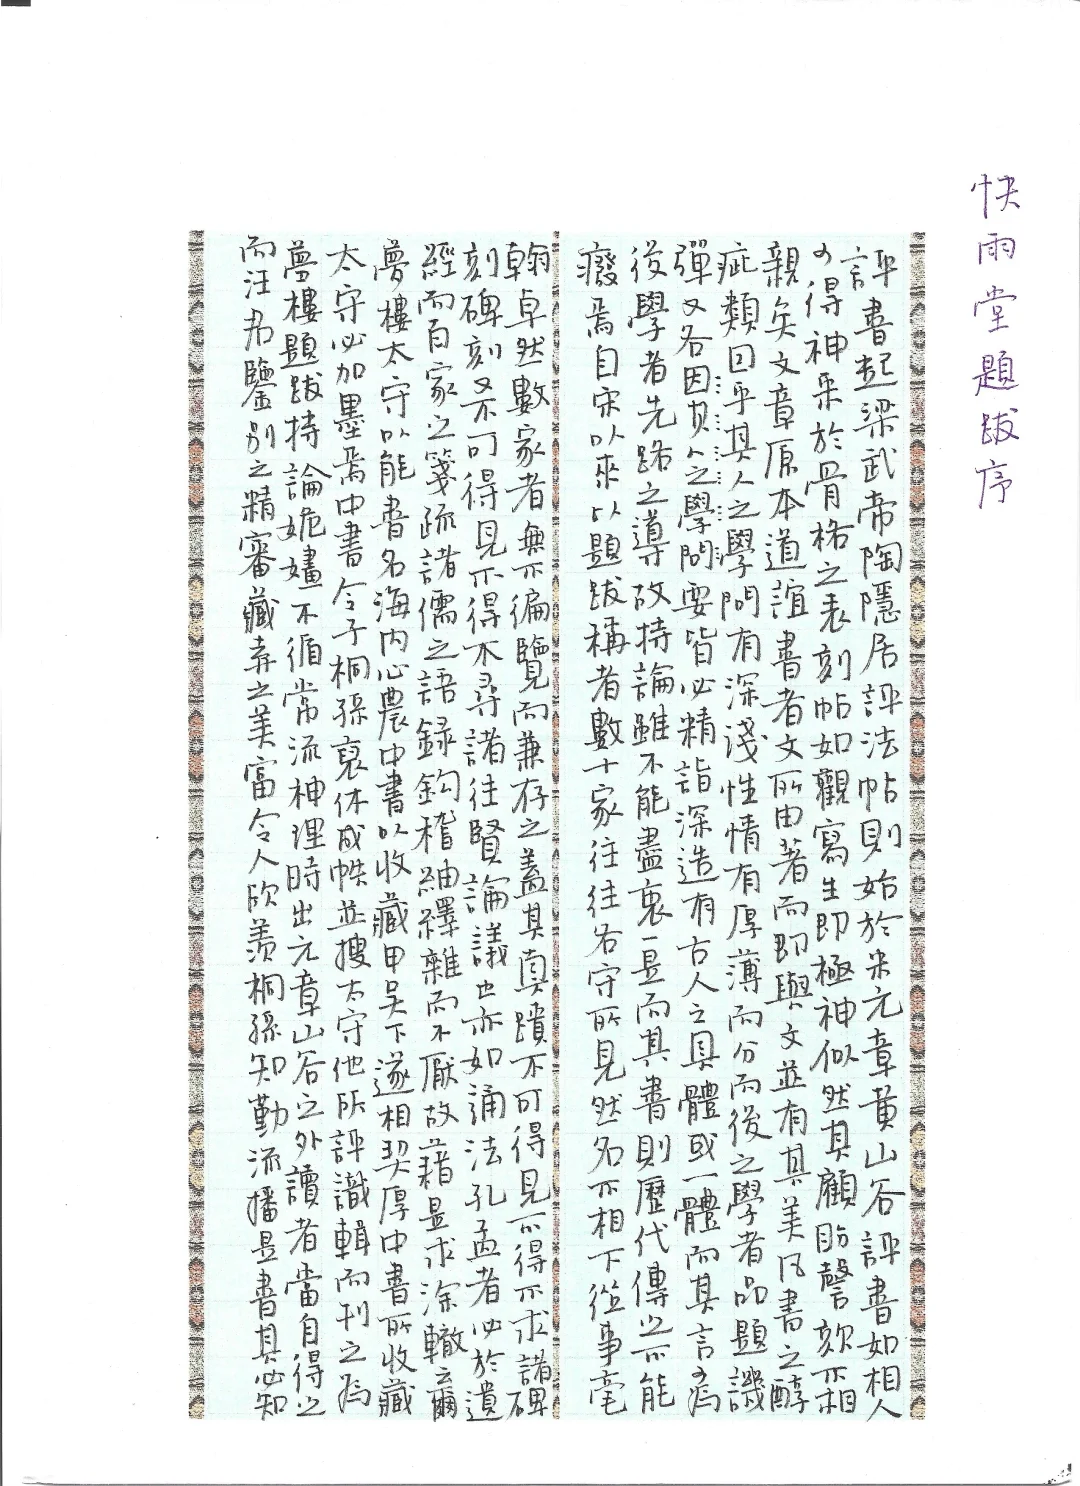 快雨堂題跋序
評書起梁武帝陶隱居評法帖則始於米元章黃山谷評書如相人
可得神采於骨格之表刻帖如觀寫生即極神似然其顧盼謦欬不相
親矣文章原本道誼書者文所由著而即與文並有其美凡書之醇
疵類因乎其人之學問有深淺性情有厚薄而分而後之學者品題譏
彈又各因其人之學問要皆必精詣深造有古人之具體或一體而其言可為
後學者先路之導故持論雖不能盡衷一是而其書則歷代傳之不能
癈焉自宋以來以題跋稱者數十家往往各守所見然各不相下從事毫
翰卓然數家者無不徧覽而兼存之蓋其真蹟不可得見不得不求諸碑
刻碑刻又不可得見不得不尋諸往賢論議也亦如誦法孔孟者必於遺
經而百家之箋疏諸儒之語錄鈎稽紬繹雜而不厭故藉是求塗轍云爾
夢樓太守以能書名海內心農中書以收藏甲吳下遂相契厚中書所收藏
太守必加墨焉中書令子桐孫裒休成帙並搜太守他所評識輯而刊之為
夢樓題跋持論娓婁不循常流神理時出元章山谷之外讀者當自得之
而汪君鑒別之精審藏弆之美富令人欣羨桐孫知勤流播是書其必知